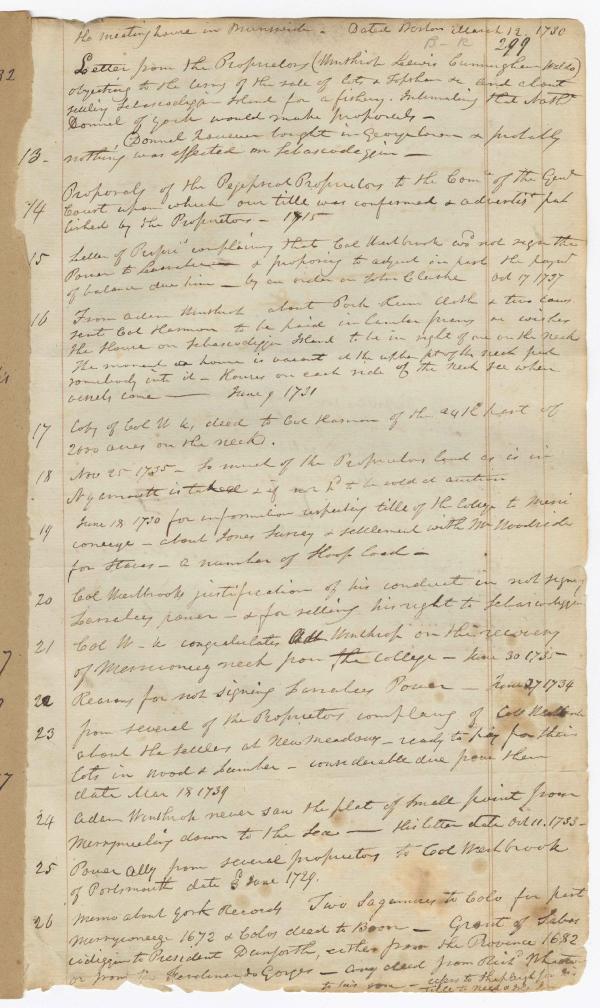 the meeting house in Brunswick. Dated Boston March 12. 1730
299
Letter from the Proprietors (Winthrop Lewis Cunningham Waldo)
objecting to the terms of the sale of lots Topsham &c and about
settling Sebascodegin Island for a fishery. Intimating that Nathl
Donnel of York would make proposals -
13- (Donnel however bought in Georgetown & probably
nothing was effected on Sebascodegin -
14 Proposals of the Pejepscot Proprietors to the Comee of the Genl
Court upon which our title was confirmed & advertist pub
lished by the Proprietors - 1715
15 Letter of Propri's complaining that Col Westbrook wd not sign the
Power to Larrabee - & proposing to adjust in part the paymt
of balance due him - by an order on John Clarke Oct 17 1737
16 From Adam Winthrop about Pork Rum Cloth & two cows
sent Col Harmon to be paid in lumber wishes
the House on Sebascodegin Island to be in sight of one on the Neck
The moment a house is vacant at the upper part of the neck put
somebody into it - Houses on each side of the Neck see when
vessels come - June 9 1731
17 Copy of Col W-k's deed to Col Harmon of the 24th part of
2000 acres on the neck.
18 Nov 25 1735 - So much of the Proprietors land as is in
N Yarmouth is taxed & if not pd to be sold at auction
19 June 18 1730 for information respecting title of the College to Merri
coneege - about Jones Survey & settlement with Mr Woodside
for Staves - a number of Hoop load -
20 Col Westbrooks justification of his conduct in not signing
Larrabees power - & for selling his right to Sebascodeggin
21 Col W-k congratulates Adm Winthrop on the recovery
of Merriconeeg neck from the college - June 30 1735-
22 Reasons for not signing Larrabees Power - June 27 1734
23 from several of the Proprietors complaing of Coll Westbrook
about the settlers at New Meadows - ready to pay for their
Lots in wood & Lumber - considerable due from them
date Mar 18 1739
24 Adam Winthrop never saw the plat of Small point from
Merrymeeting down to the Sea - His letter date Oct 11. 1733-
25 Power Atty from several proprietors to Col Westbrook
of Portsmouth date June 1729.
26 Memo about York Records Two Sagamores to Cols for part
Merryconeege 1672 & Coles deed to Boon - Grant of Sebas
codeggin to President Danforth, either from the Province 1682
or from Sr Ferdinando Gorges - any deed from Richd Wharton
to his son -